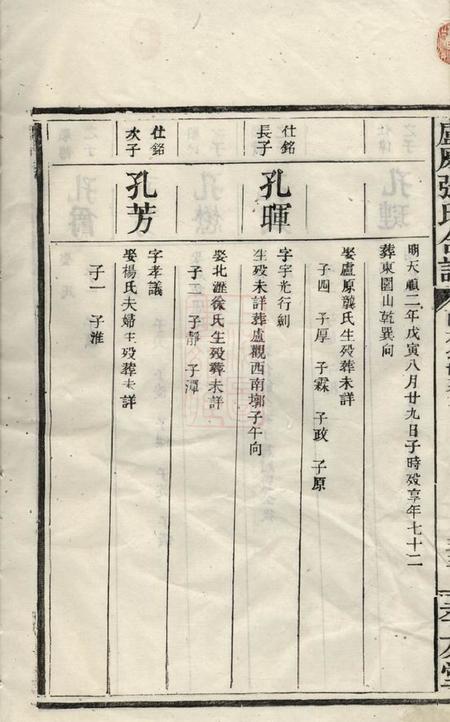 明天順二年戊寅八月廿九日子時歿享年七十二
葬東園山乾巽向
娶盧原龔氏生歿葬未詳
子四 子厚 子霖 子政 子原
仕銘長子
孔暉
字宇光行釗
生歿未詳葬盧觀西南塘子午向
娶北瀝徐氏生歿葬未詳
子二 子靜 子潭
仕銘次子
孔芳
字孝議
娶楊氏夫婦生歿葬未詳
子一 子淮